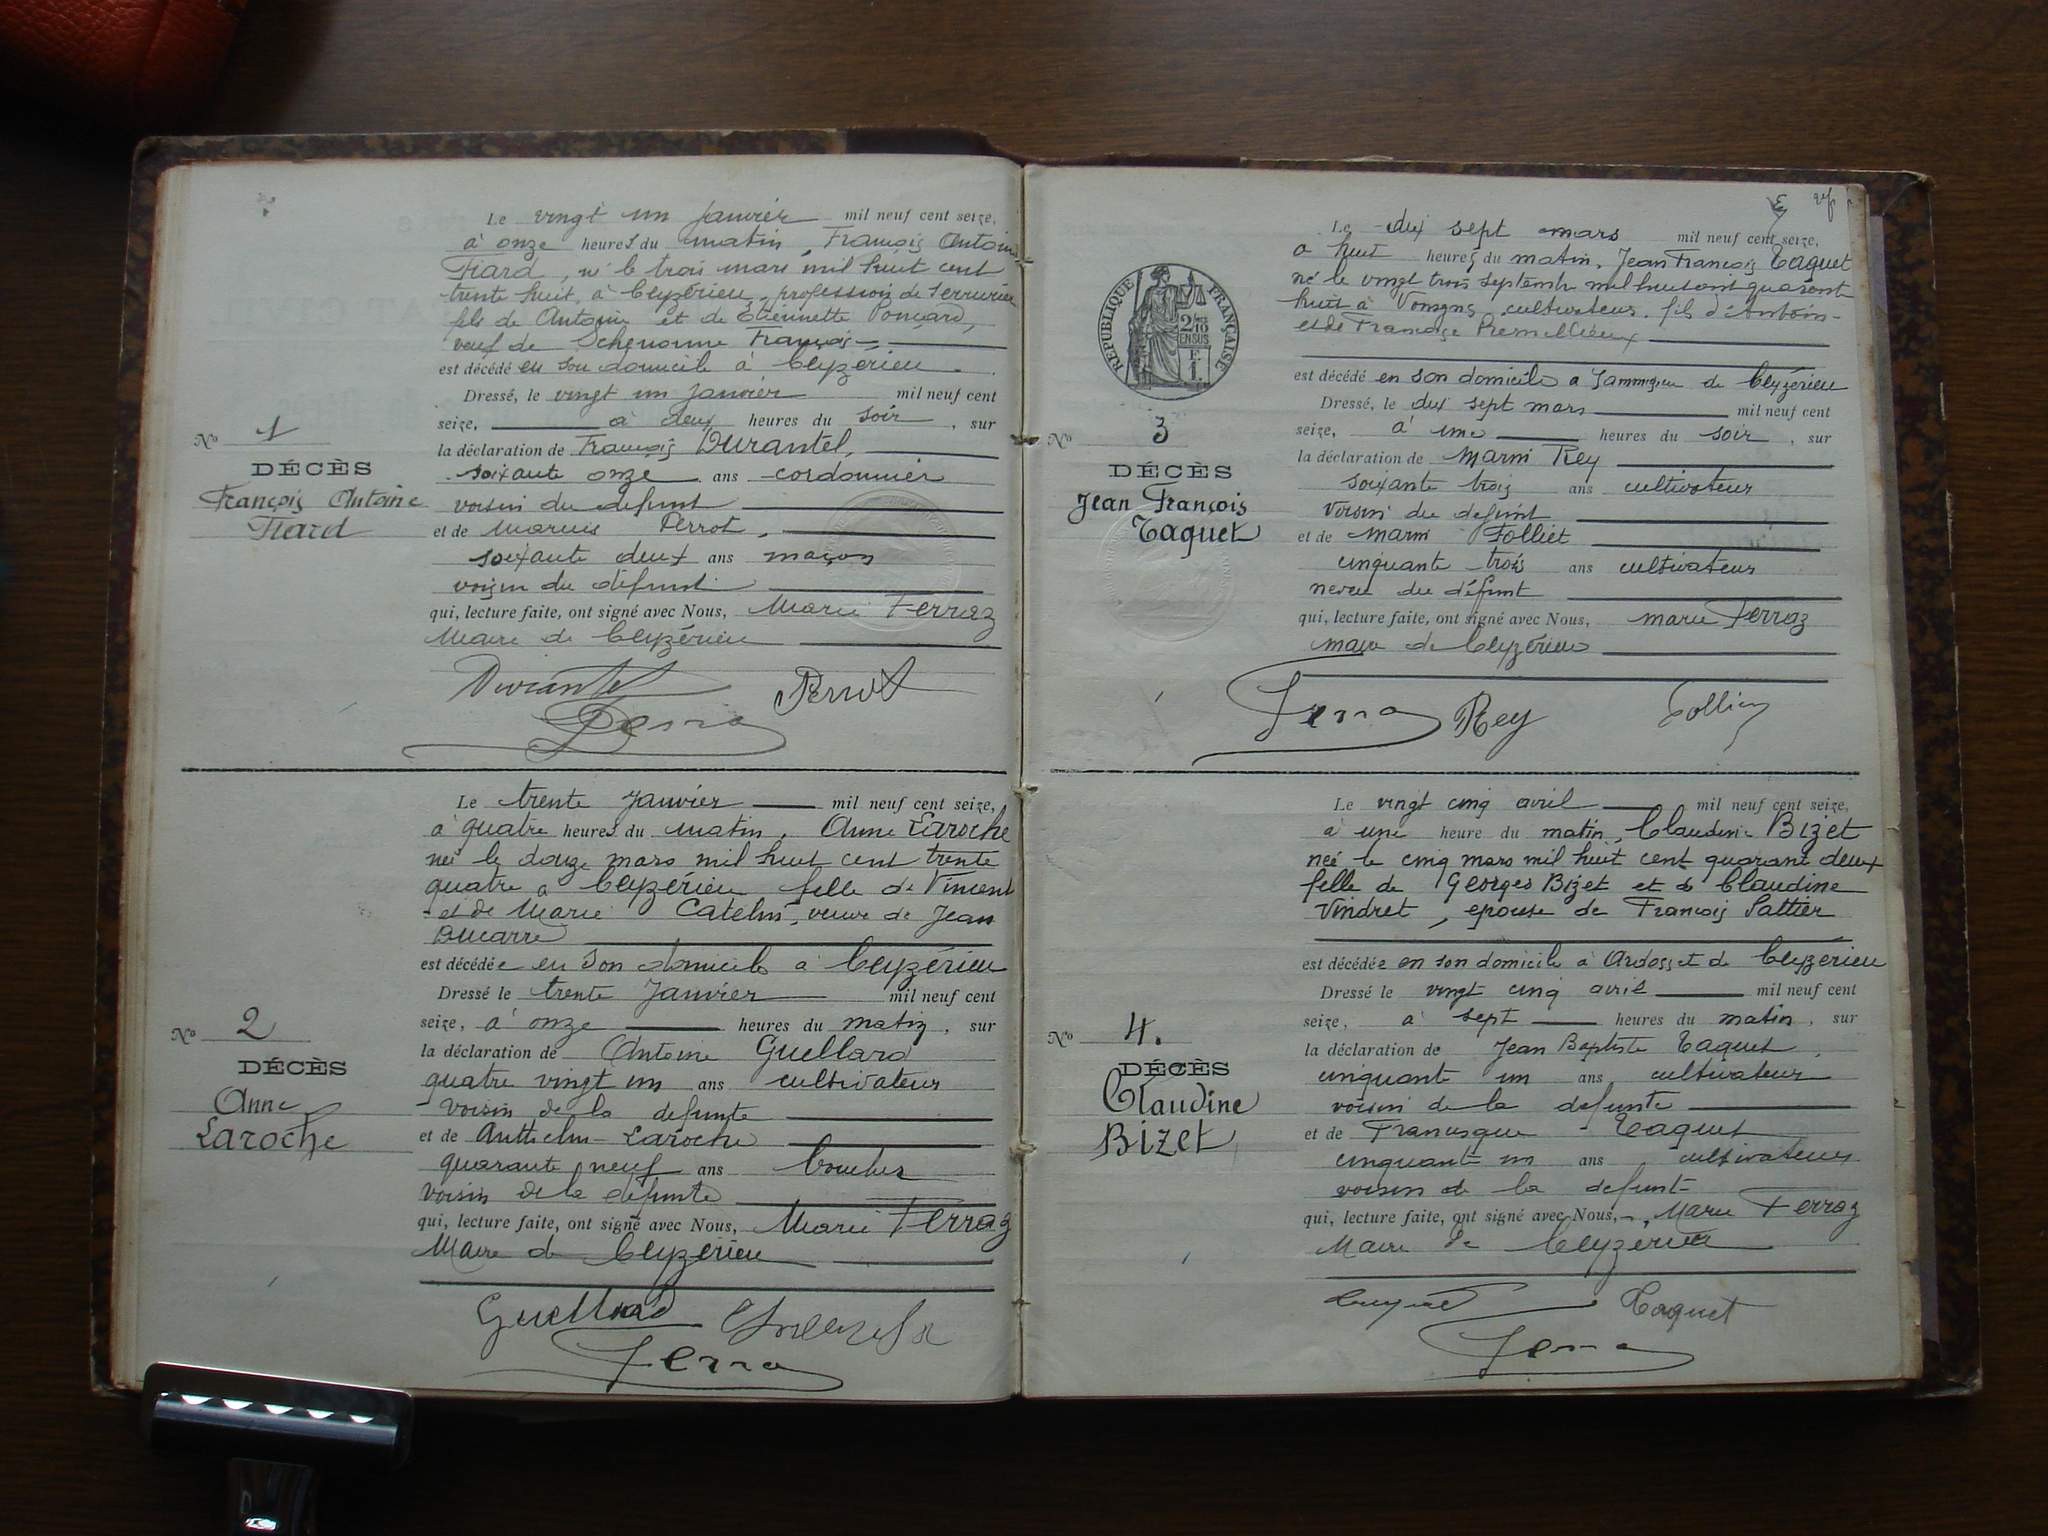 Le vingt un janvier mil neuf cent seize,
à onze heures du matin, François Antoine
Fiard, né le trois mars mil huit cent
trente huit, à Ceyzérieu, profession de serrurier
fils de Antoine et de Etiennette Ponçard,
veuf de François
est décédé en son domicile à Ceyzerieu
Dressé, le vingt un janvier mil neuf cent
seize, à deux heures du soir, sur
la déclaration de François Durantel,
soixante onze ans cordonnier
voisin du defunt
et de Marius Perrot,
soixante deux ans maçon
voisin du défunt
qui, lecture faite, ont signé avec Nous, Marie Ferraz
Maire de Ceyzérieu
Nº 1
DÉCÈS
François Antoine
Fiard
Durantel Perrot
Ferra
Le trente Janvier mil neuf cent seize,
à quatre heures du matin, Anne Laroche
née le douze mars mil huit cent trente
quatre a Ceyzérieu fille de Vincent
et de Marie Catelin, veuve de Jean
Ducarre
est décédée en son domicile à Ceyzérieu
Dressé le trente Janvier mil neuf cent
seize, à onze heures du matin, sur
la déclaration de Antoine Guellard
quatre vingt un ans cultivateur
voisin de la defunte
et de Anthelm Laroche
quarante neuf ans boucher
voisin de la défunte
qui, lecture faite, ont signé avec Nous, Marie Ferraz
Maire de Ceyzérieu
Nº 2
DÉCÈS
Anne
Laroche
Guellard
Ferra
Le dix sept mars mil neuf cent seize,
a huit heures du matin, Jean François Taquet
né le vingt trois septembre mil huit cent quarante
huit à Vongnes cultivateur, fils d'Antoine
et de Françoise
est décédé en son domicile a de Ceyzérieu
Dressé, le dix sept mars mil neuf cent
seize, à une heures du soir, sur
la déclaration de Marin Rey
soixante trois ans cultivateur
voisin du defunt
et de Marin Folliet
cinquante trois ans cultivateur
neveu du défunt
qui, lecture faite, ont signé avec Nous, marie Ferraz
maire de Ceyzérieu
RÉPUBLIQUE FRANÇAISE
2/10
EN SUS
1 F.
Nº 3
DÉCÈS
Jean François
Taquet
Ferra Rey Folliet
Le vingt cinq avril mil neuf cent seize,
à une heure du matin, Claudine Bizet
née le cinq mars mil huit cent quarante deux
fille de Georges Bizet et de Claudine
Vindret, epouse de François Sattier
est décédée en son domicile à Ardosset de Ceyzérieu
Dressé le vingt cinq avril mil neuf cent
seize, à sept heures du matin, sur
la déclaration de Jean Baptiste Taquet,
cinquante un ans cultivateur
voisin de la defunte
et de Francisque Taquet
cinquante un ans cultivateur
voisin de la defunte
qui, lecture faite, ont signé avec Nous, Marie Ferraz
Maire de Ceyzerieu
Nº 4.
DÉCÈS
Claudine
Bizet
Taquet
Ferra